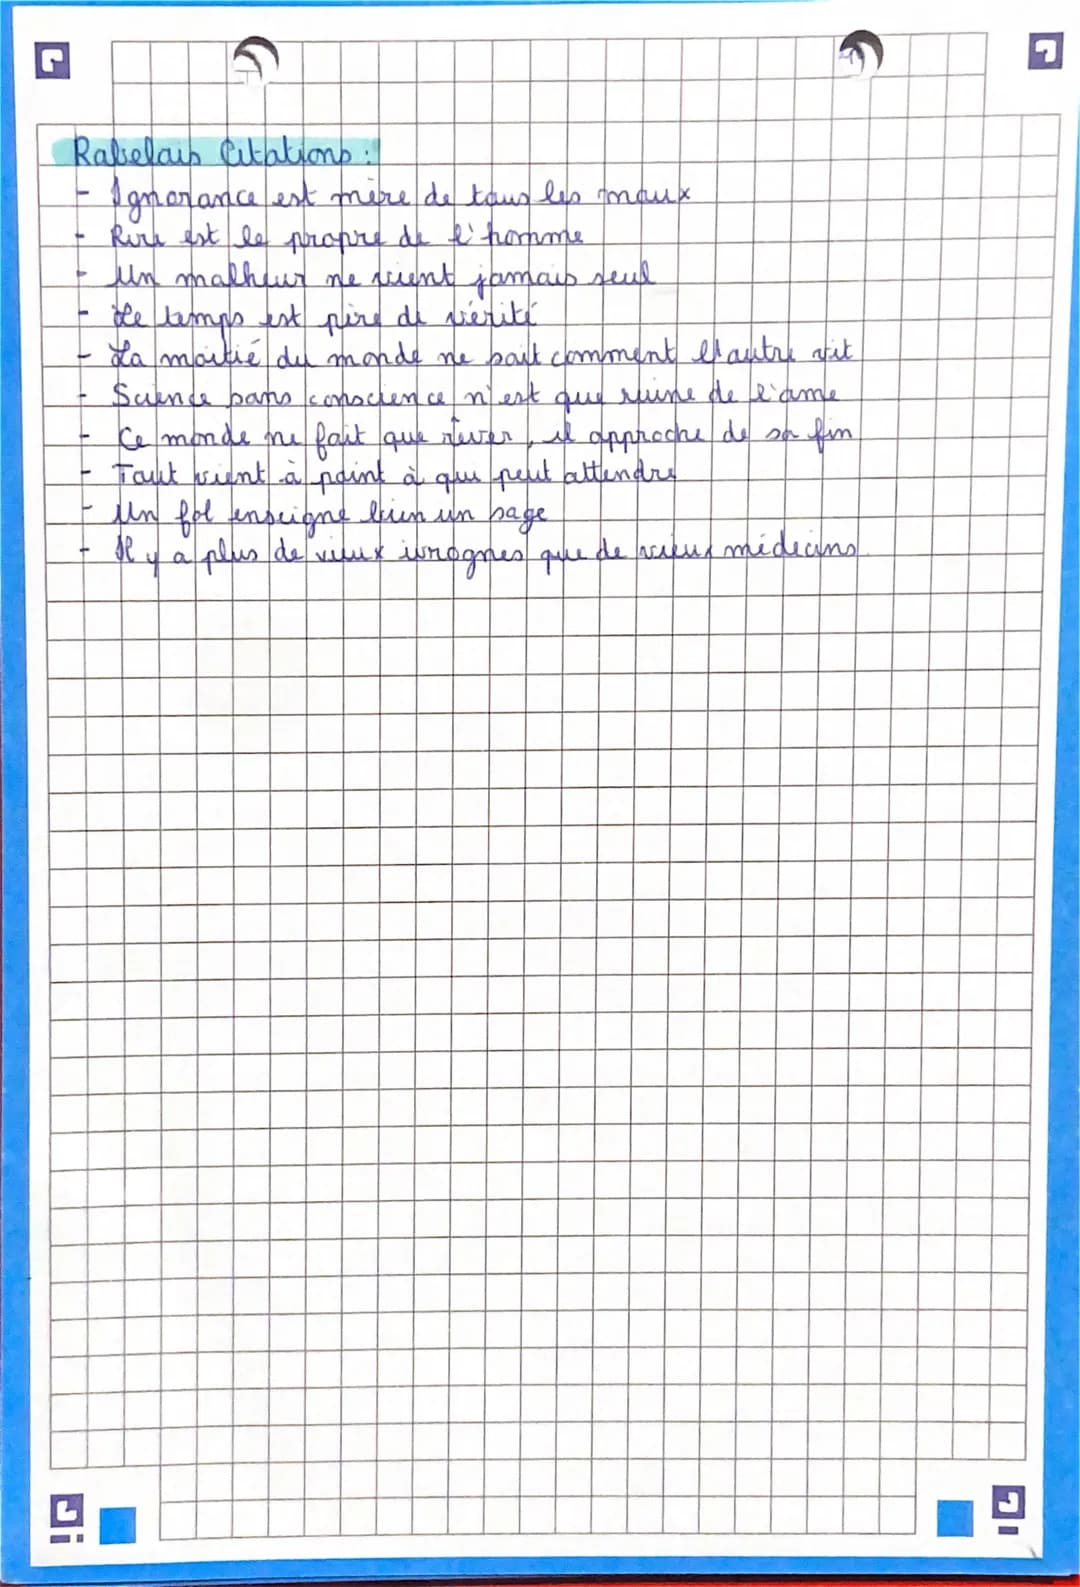 Rabelais Citations :
- Ignorance est mère de tous les maux
- Rire est le propre de l'homme
- Un malheur ne vient jamais seul
- Le temps est père de vérité
- La moitié du monde ne sait comment l'autre vit
- Science sans conscience n'est que ruine de l'ame
- Ce monde ne fait que rêver, il approche de sa fin
- Tout vient à point à qui peut attendre
- Un fol enseigne bien un sage
- Il y a plus de vieux ivrognes que de vieux médecins